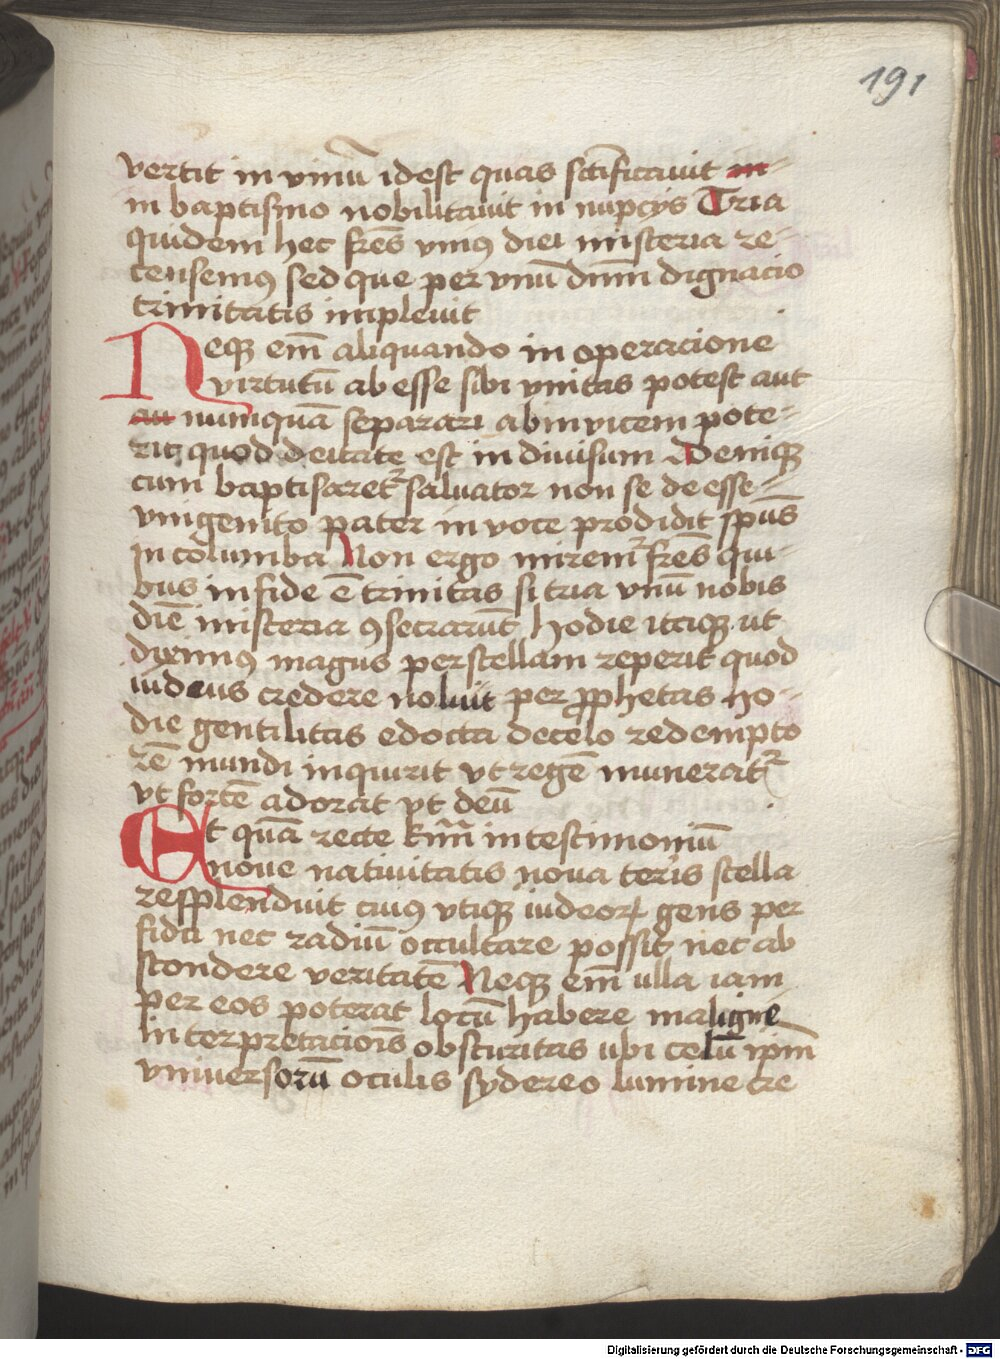 191
vertit in vinū idest quas sctīficauit in
in baptismo nobilitauit in nupcijs Tria
quidem hec frēs vniꝰ diei misteria re-
censemꝰ sed que per vnū dnm̄ dignacio
trinitatis impleuit
Neqꝫ em̄ aliquando in operacione
virtutū ab esse sibi vnitas potest aut
au numquā separari abinvicem pote-
rit quod deitate est in diuisum Deniqꝫ
cum baptisaretᷣ saluator non se de esse
vnigenito pater in voce prodidit spūs
in columba Non ergo miremᷣ frēs qui-
bus in fide ē trinitas si tria vnū nobis
diē misteria ꝯsecrarūt hodie itaqꝫ ut
diximꝰ magus per stellam reperit quod
iudeus credere noluit per ꝓphetas ho-
die gentilitas edocta decelo redempto
rē mundi inquirit vt regē muneratᷣ
vt fortē adorat vt deū
Et quā recte kmī in testimoniū
noue natiuitatis noua terīs stella
resplenduit cuiꝰ vtiqꝫ iudeoꝝ gens per
fida nec radiū occultare possit nec ab
scondere veritatē Neqꝫ em̄ ulla iam
per eos poterat locū habere maligne
interpretacionīs obscuritas ubi celū ipm̄
vniuersorū oculis sydereo lumine cre
Digitalisierung gefördert durch die Deutsche Forschungsgemeinschaft - DFG